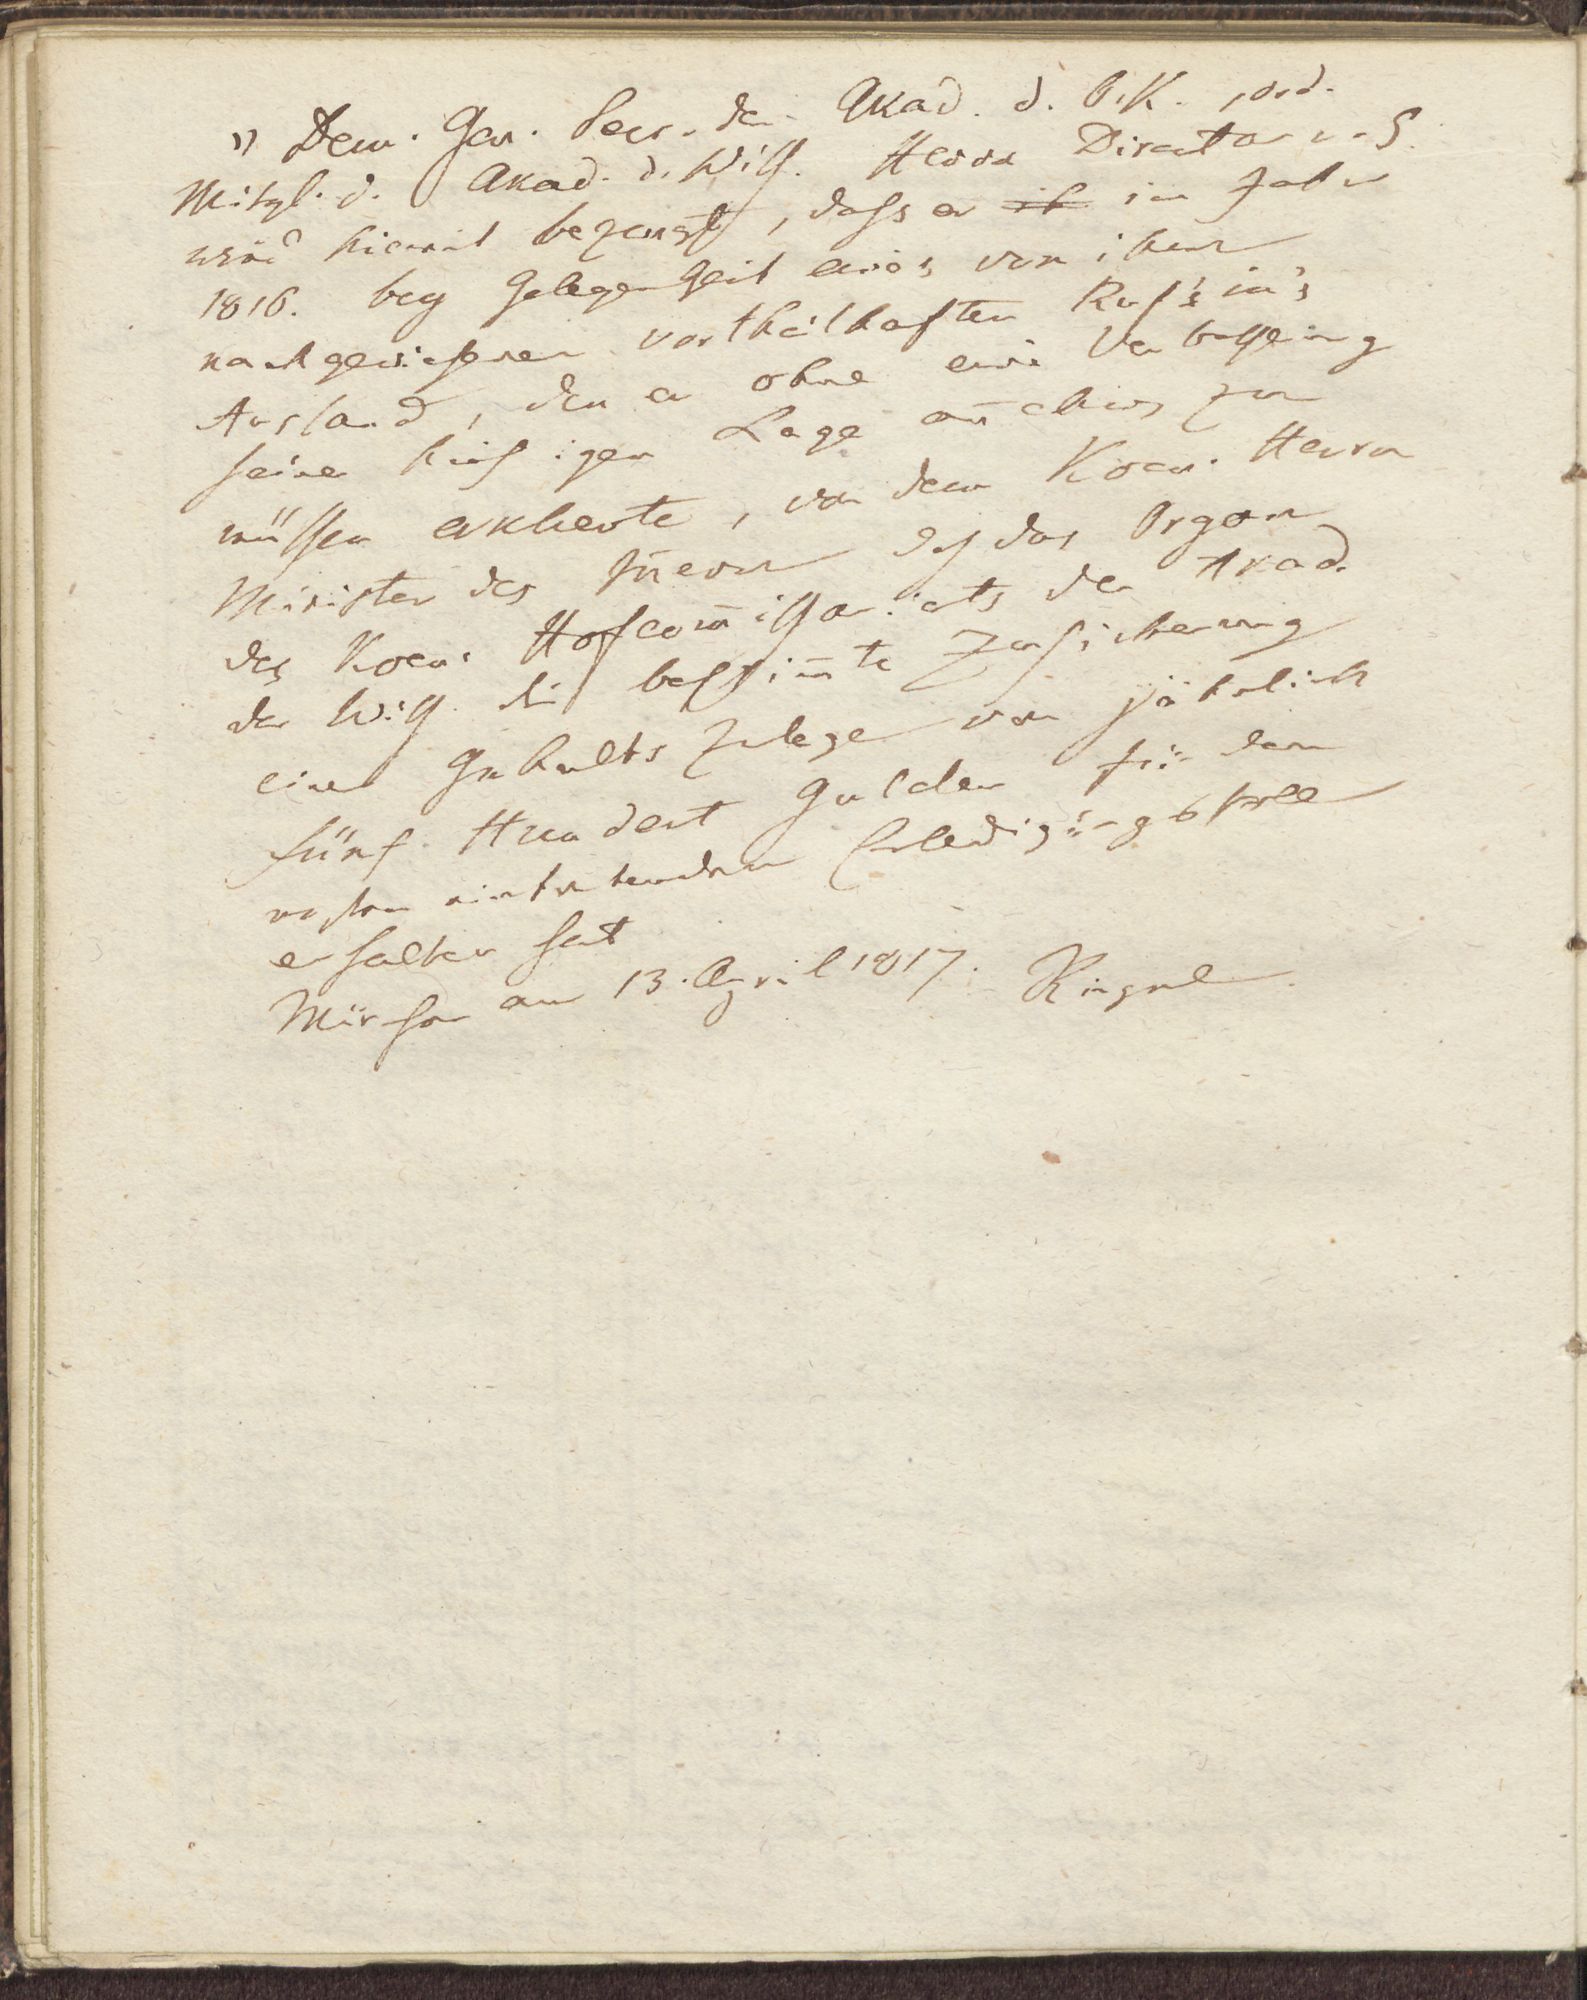 " Dem. Gen. Secr. der Akad. d. B. K., ord.
Mitgl. d. Akad. d. Wiss. Herrn Director v. S.
wird hiemit bezeugt, dass er ih im Jahr
1816. bey Gelegenheit eines von ihm
nachgewiesenen vortheilhaften Ruf's in's
Ausland, den er ohne eine Verbesserung
seiner hiesigen Lage annehmen zu
müssen erklaerte, von dem Koen. Herrn
Minister des Innern als das Organ
des Koen. Hofcom̅issariats der Akad.
der Wiss. die bestim̅te Zusicherung
einer Gehaltszulage von jährlich
fünf Hundert Gulden für den
ersten eintretenden Erledigungsfall
erhalten hat
München am 13. April 1817. Ringel